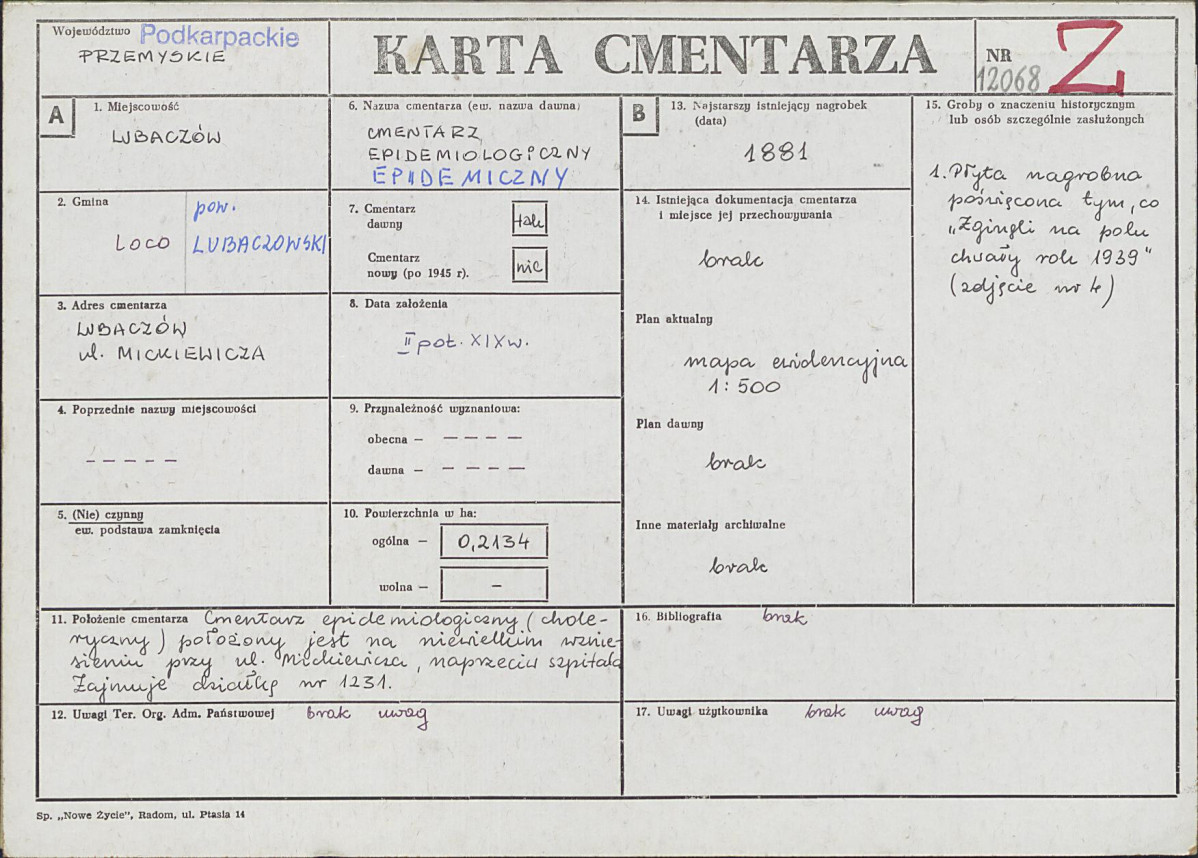 Województwo Podkarpackie
PRZEMYSKIE
KARTA CMENTARZA
NR
12068
Z
A
1. Miejscowość
LUBACZÓW
2. Gmina
LOCO
pow.
LUBACZOWSKI
3. Adres cmentarza
LUBACZÓW
ul. MICKIEWICZA
4. Poprzednie nazwy miejscowości
– – – – –
5. (Nie) czynny
ew. podstawa zamknięcia
6. Nazwa cmentarza (ew. nazwa dawna)
CMENTARZ
EPIDEMIOLOGICZNY
EPIDEMICZNY
7. Cmentarz
dawny
tak
Cmentarz
nowy (po 1945 r).
nie
8. Data założenia
II poł. XIX w.
9. Przynależność wyznaniowa:
obecna – – – – –
dawna – – – – –
10. Powierzchnia w ha:
ogólna – 0,2134
wolna – –
B
13. Najstarszy istniejący nagrobek
(data)
1881
14. Istniejąca dokumentacja cmentarza
i miejsce jej przechowywania
brak
Plan aktualny
mapa ewidencyjna
1:500
Plan dawny
brak
Inne materiały archiwalne
brak
15. Groby o znaczeniu historycznym
lub osób szczególnie zasłużonych
1. Płyta nagrobna
poświęcona tym, co
„Zginęli na polu
chwały rok 1939"
(zdjęcie nr 4)
11. Położenie cmentarza Cmentarz epidemiologiczny (chole-
ryczny) położony jest na niewielkim wznie-
sieniu przy ul. Mickiewicza, naprzeciw szpitala
Zajmuje działkę nr 1231.
12. Uwagi Ter. Org. Adm. Państwowej brak uwag
16. Bibliografia brak
17. Uwagi użytkownika brak uwag
Sp. „Nowe Życie", Radom, ul. Ptasia 14